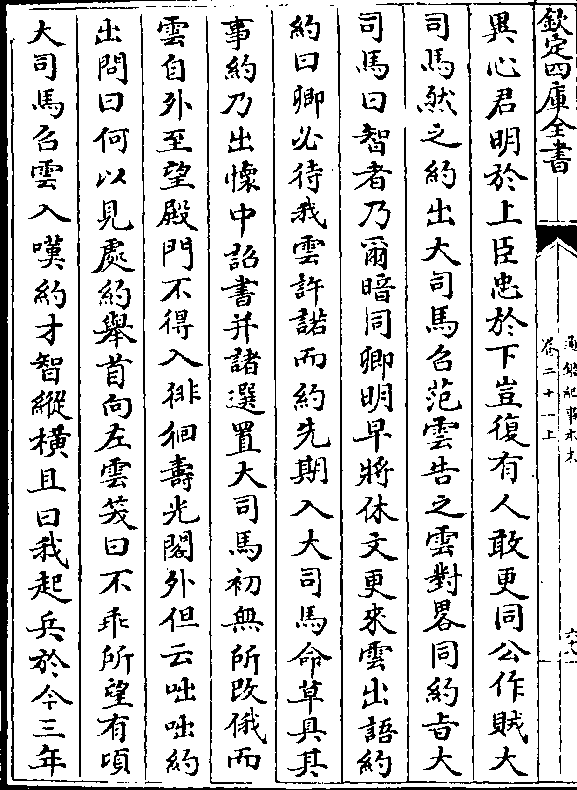 欽定四庫全書
通鑑紀事本末
卷二十一上
異心君明於上臣忠於下豈復有人敢更同公作賊大
司馬然之約出大司馬召范雲告之雲對畧同約㫖大
司馬曰智者乃爾暗同卿明早將休文更來雲出語約
約曰卿必待我雲許諾而約先期入大司馬命草具其
事約乃出懷中詔書并諸選置大司馬初無所改俄而
雲自外至望殿門不得入徘徊壽光閣外但云咄咄約
出問曰何以見處約舉首向左雲笑曰不乖所望有頃
大司馬召雲入嘆約才智縱橫且曰我起兵於今三年